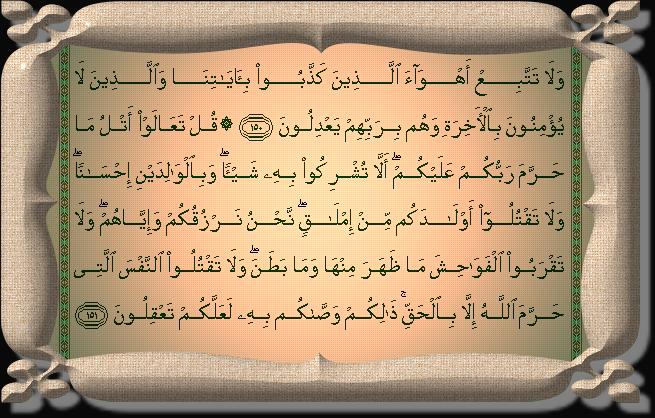 وَلَا تَتَّبِعْ أَهْوَآءَ ٱلَّذِينَ كَذَّبُوا۟ بِـَٔايَـٰتِنَا وَٱلَّذِينَ لَا
يُؤْمِنُونَ بِٱلْأَخِرَةِ وَهُم بِرَبِّهِمْ يَعْدِلُونَ ١٥٠ ۞ قُلْ تَعَالَوْا۟ أَتْلُ مَا
حَرَّمَ رَبُّكُمْ عَلَيْكُمْ ۖ أَلَّا تُشْرِكُوا۟ بِهِۦ شَيْـًٔا ۖ وَبِٱلْوَٰلِدَيْنِ إِحْسَـٰنًا ۖ
وَلَا تَقْتُلُوٓا۟ أَوْلَـٰدَكُم مِّنْ إِمْلَـٰقٍ ۖ نَّحْنُ نَرْزُقُكُمْ وَإِيَّاهُمْ ۖ وَلَا
تَقْرَبُوا۟ ٱلْفَوَٰحِشَ مَا ظَهَرَ مِنْهَا وَمَا بَطَنَ ۖ وَلَا تَقْتُلُوا۟ ٱلنَّفْسَ ٱلَّتِى
حَرَّمَ ٱللَّهُ إِلَّا بِٱلْحَقِّ ۚ ذَٰلِكُمْ وَصَّىٰكُم بِهِۦ لَعَلَّكُمْ تَعْقِلُونَ ١٥١